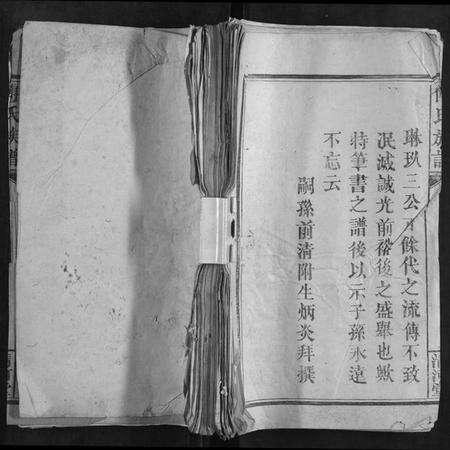 琳玖三公十餘代之流傳不致
泯滅誠光前裕後之盛舉也歟
特筆書之譜後以示子孫永遠
不忘云
嗣孫前清附生炳炎拜撰
氏族譜